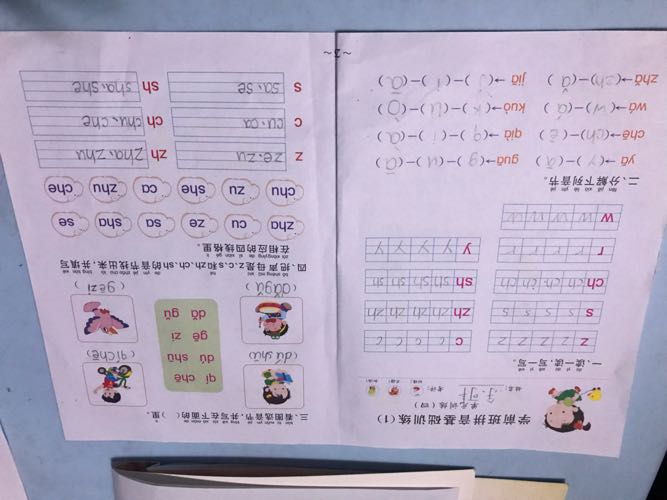 学前班拼音基础训练（1）
单元训练（四）
姓名：
一、读一读，写一写。
z z z z z z c c c c c
s s s s s s zh zh zh zh zh
ch ch ch ch ch sh sh sh sh sh
r r r r r y y y y y
w w w w w w
二、分解下列音节。
yā→(y)—(ā) guā→(g)—(u)—(ā)
chē→(ch)—(ē) qià→(q)—(i)—(à)
wá→(w)—(á) kuò→(k)—(u)—(ò)
zhǎ→(zh)—(ǎ) jiā→(j)—(i)—(ā)
三、看图选音节，并写在下面的（ ）里。
qí chē
dú shū
gē zi
dǎ gǔ
(dú shū) (qí chē)
(dǎ gǔ) (gē zi)
四、把声母是z、c、s和zh、ch、sh的音节找出来，并填写
在相应的四线格里。
zha cu ze sa sha se
chu zu she ca zhu che
z ze、zu zh zha、zhu
c cu、ca ch chu、che
s sa、se sh sha、she